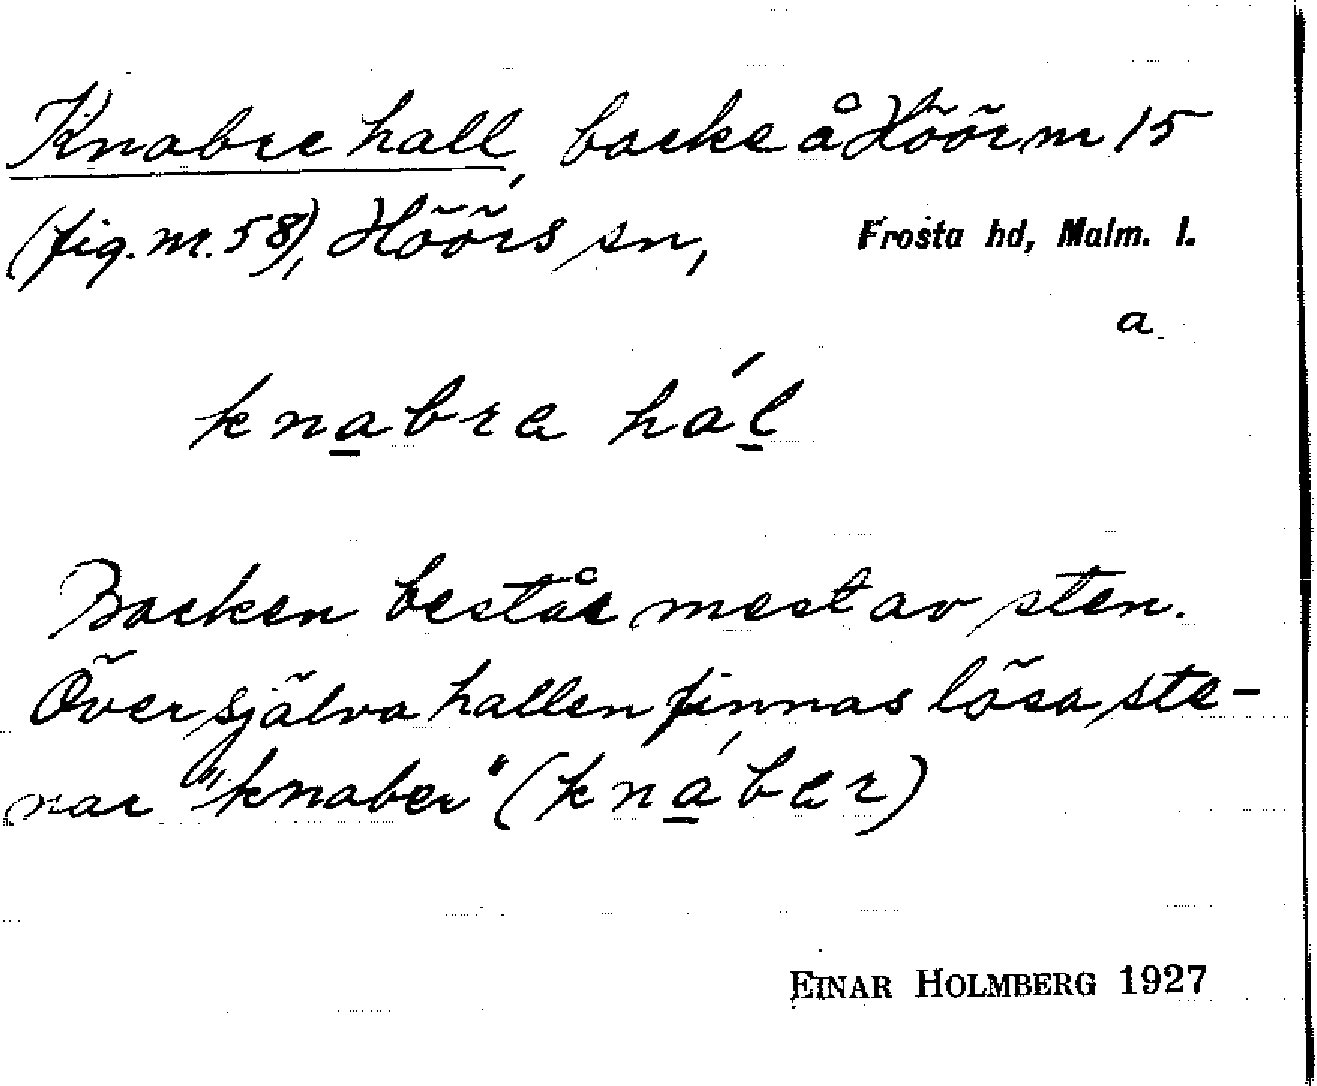 Knabre hall, backe å Höör nr 15
(fig. nr. 58), Höörs sn, Frosta hd, Malm. l.
a
knabra hál
Backen består mest av sten.
Över själva hallen finnas lösa ste-
nar "knaber" (knábər)
EINAR HOLMBERG 1927